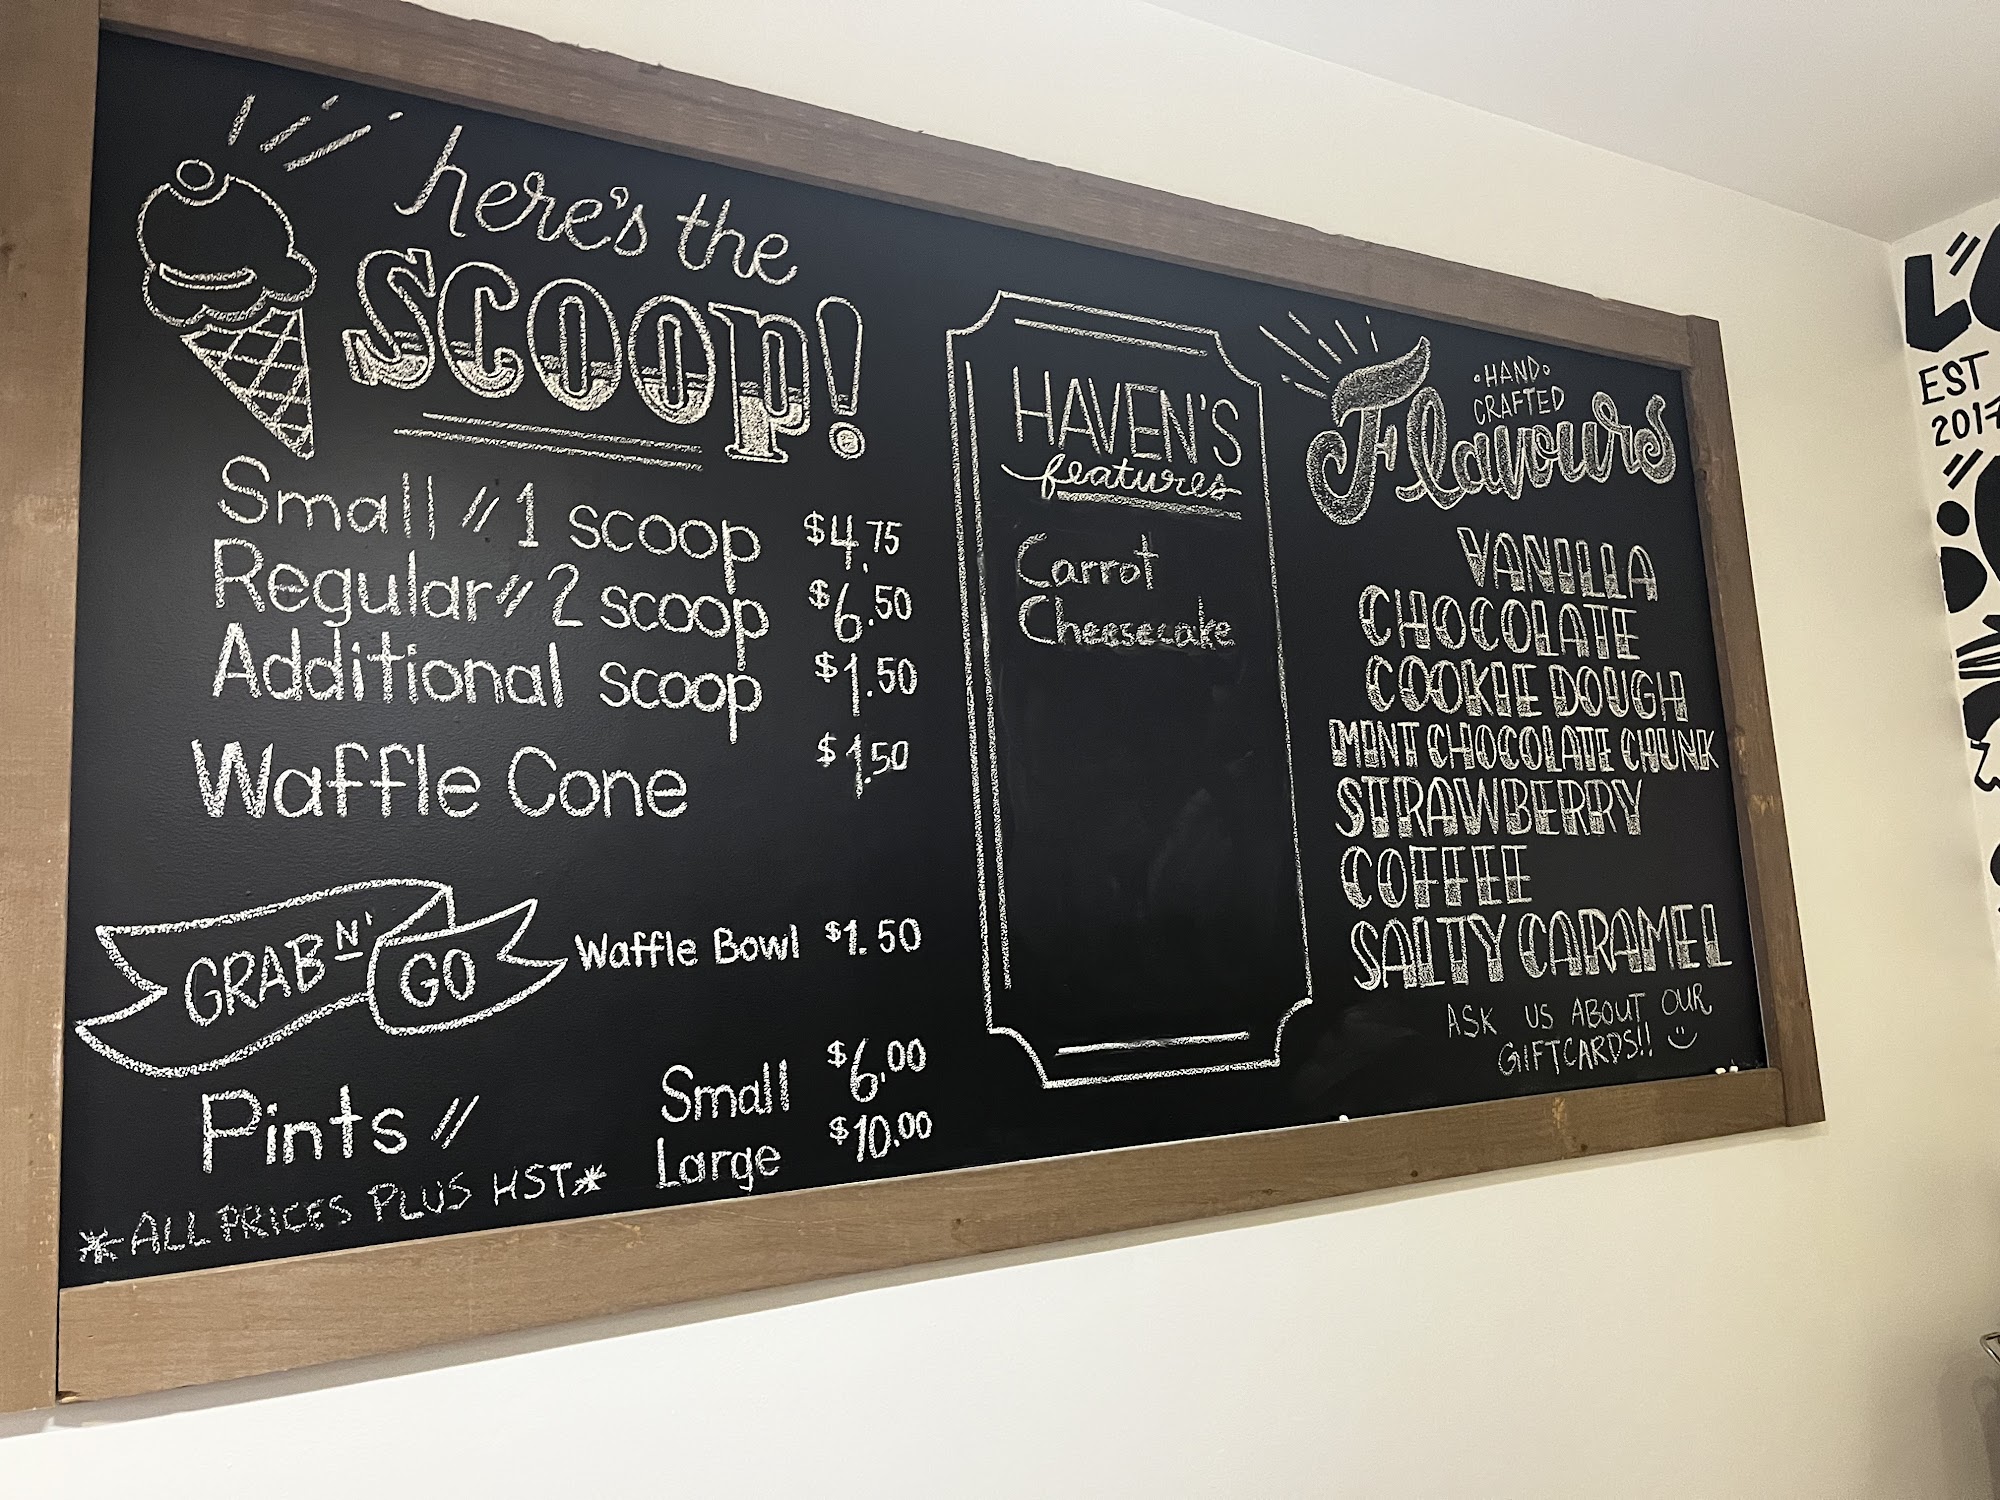 here's the
SCOOP!
Small // 1 scoop $4.75
Regular // 2 scoop $6.50
Additional scoop $1.50
Waffle Cone $1.50
GRAB N' GO
Waffle Bowl $1.50
Pints //
Small $6.00
Large $10.00
*ALL PRICES PLUS HST*
HAVEN'S
features
Carrot
Cheesecake
·HAND·
CRAFTED
Flavours
VANILLA
CHOCOLATE
COOKIE DOUGH
MINT CHOCOLATE CHUNK
STRAWBERRY
COFFEE
SALTY CARAMEL
ASK US ABOUT OUR
GIFTCARDS!!
EST
2017